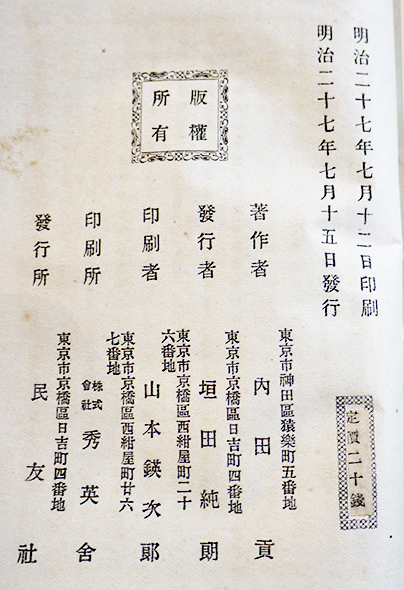 明治二十七年七月十二日印刷
明治二十七年七月十五日發行
定價二十錢
版權
所有
著作者
東京市神田區猿樂町五番地
內田貢
發行者
東京市京橋區日吉町四番地
垣田純朗
印刷者
東京市京橋區西紺屋町二十
六番地
山本鍈次郞
印刷所
東京市京橋區西紺屋町廿六
七番地
株式
會社
秀英舍
發行所
東京市京橋區日吉町四番地
民友社